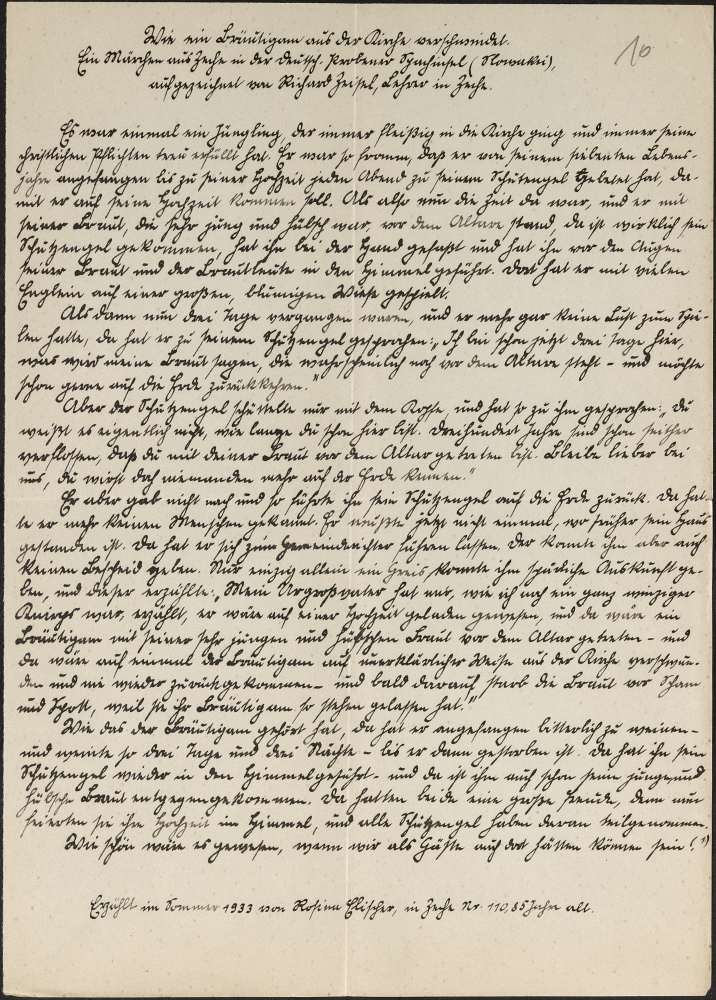 Wie ein Bräutigam aus der Kirche verschwindet.
Ein Märchen aus Zeche in der deutsch. Probener Sprachinsel (Slowakei),
aufgezeichnet von Richard Zeisel, Lehrer in Zeche.
10
Es war einmal ein Jüngling, der immer fleißig in die Kirche ging und immer seine
christlichen Pflichten treu erfüllt hat. Er war so fromm, daß er von seinem siebenten Lebens-
jahre angefangen bis zu seiner Hochzeit jeden Abend zu seinem Schutzengel gebetet hat, da-
mit er auf seine Hochzeit kommen soll. Als also nun die Zeit da war, und er mit
seiner Braut, die sehr jung und hübsch war, vor dem Altare stand, da ist wirklich sein
Schutzengel gekommen, hat ihn bei der Hand gefaßt und hat ihn vor den Augen
seiner Braut und der Brautleute in den Himmel geführt. Dort hat er mit vielen
Englein auf einer großen, blumigen Wiese gespielt.
Als dann nun drei Tage vergangen waren, und er mehr gar keine Lust zum Spie-
len hatte, da hat er zu seinem Schutzengel gesprochen: „Ich bin schon jetzt drei Tage hier,
was wird meine Braut sagen, die wahrscheinlich noch vor dem Altare steht - und möchte
schon gerne auf die Erde zurückkehren."
Aber der Schutzengel schüttelte nur mit dem Kopfe, und hat so zu ihm gesprochen: „Du
weißt es eigentlich nicht, wie lange du schon hier bist. Dreihundert Jahre sind schon seither
verflossen, daß du mit deiner Braut vor dem Altar getreten bist. Bleibe lieber bei
uns, du wirst doch niemanden mehr auf der Erde kennen."
Er aber gab nicht nach und so führte ihn sein Schutzengel auf die Erde zurück. Da hat-
te er mehr keinen Menschen gekannt. Er wußte jetzt nicht einmal, wo früher sein Haus
gestanden ist. Da hat er sich zum Gemeinderichter führen lassen. Der konnte ihm aber auch
keinen Bescheid geben. Nur einzig allein ein Greis konnte ihm spärliche Auskunft ge-
ben, und dieser erzählte: „Mein Urgroßvater hat mir, wie ich noch ein ganz winziger
Knirps war, erzählt, er wäre auf einer Hochzeit geladen gewesen, und da wäre ein
Bräutigam mit seiner sehr jungen und hübschen Braut vor dem Altar getreten - und
da wäre auf einmal der Bräutigam auf unerklärlicher Weise aus der Kirche verschwun-
den - und nie wieder zurückgekommen - und bald darauf starb die Braut vor Scham
und Spott, weil sie ihr Bräutigam so stehen gelassen hat."
Wie das der Bräutigam gehört hat, da hat er angefangen bitterlich zu weinen -
und weinte so drei Tage und drei Nächte - bis er dann gestorben ist. Da hat ihn sein
Schutzengel wieder in den Himmel geführt - und da ist ihm auch schon seine junge und
hübsche Braut entgegengekommen. Da hatten beide eine große Freude, denn nun
feierten sie ihre Hochzeit im Himmel, und alle Schutzengel haben daran teilgenommen.
Wie schön wäre es gewesen, wenn wir als Gäste auch dort hätten können sein!
Erzählt im Sommer 1933 von Rosina Elischer, in Zeche Nr. 110, 85 Jahre alt.